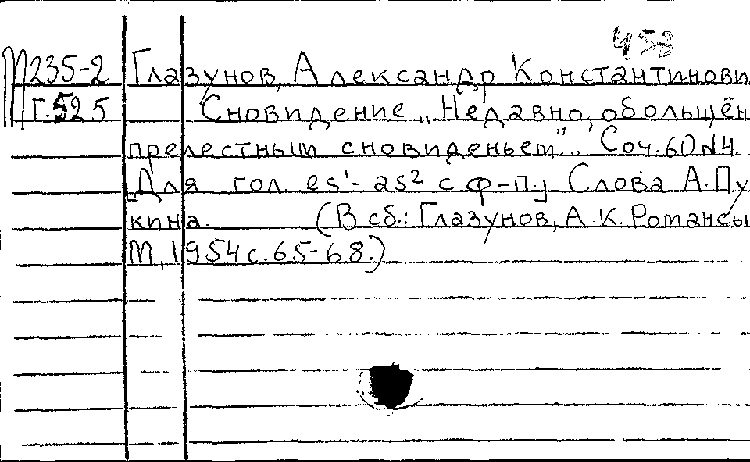 453
М235-2 Глазунов, Александр Константинови
Г.525 Сновидение „Недавно, обольщён
прелестным сновиденьем". Соч. 60 №4
Для гол. es¹-as² с ф-пу Слова А. Пу
кина. (В сб.: Глазунов, А.К. Романсы
М, 1954 с. 65-68.)